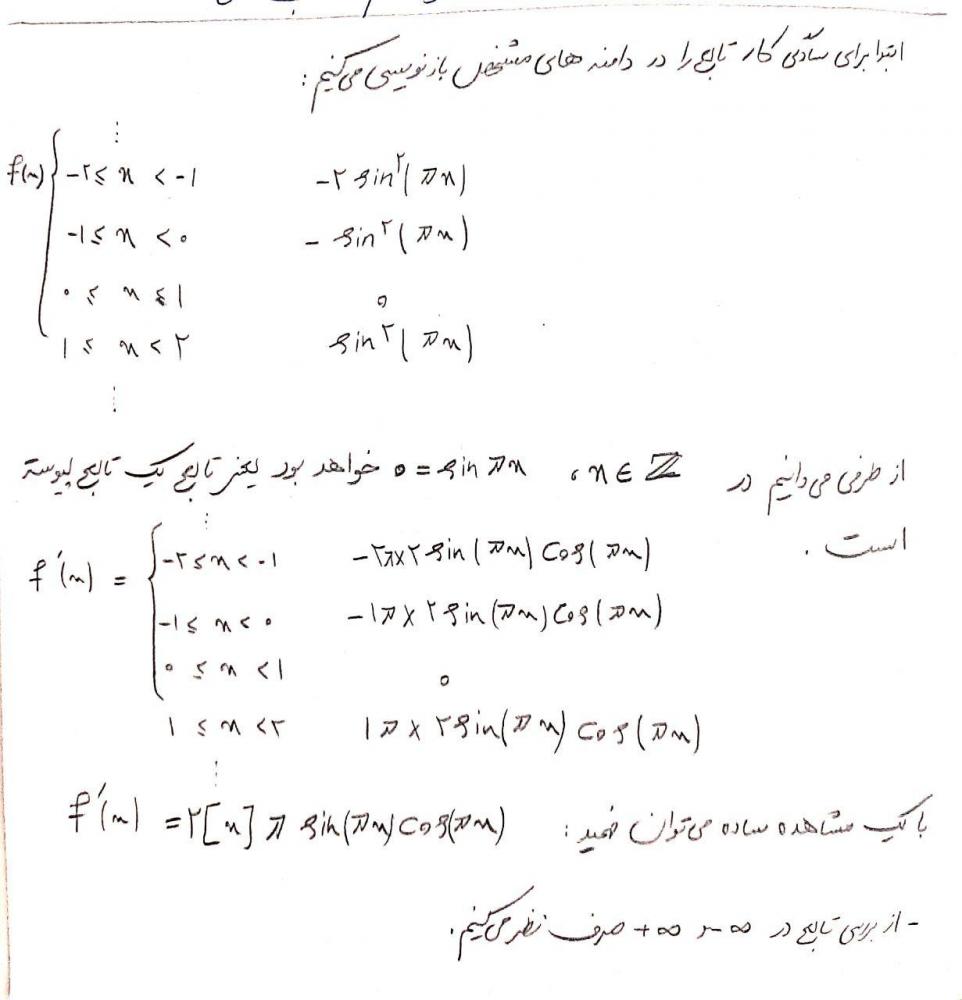 ابتدا برای سادگی کار تابع را در دامنه های مشخص بازنویسی می‌کنیم :
⋮
f(x) { -۲ ≤ x < -۱   -۲ sin²(πx)
-۱ ≤ x < ۰   - sin²(πx)
۰ ≤ x ≤ ۱   ۰
۱ ≤ x < ۲   sin²(πx)
⋮
از طرفی می‌دانیم در x ∈ ℤ ، sin πx = ۰ خواهد بود یعنی تابع یک تابع پیوسته
است .
⋮
f′(x) = { -۲ ≤ x < -۱   -۲π×۲ sin(πx) cos(πx)
-۱ ≤ x < ۰   -۱π × ۲ sin(πx) cos(πx)
۰ ≤ x < ۱   ۰
۱ ≤ x < ۲   ۱π × ۲ sin(πx) cos(πx)
⋮
با یک مشاهده ساده می‌توان فهمید : f′(x) = ۲[x] π sin(πx) cos(πx)
- از بررسی تابع در ∞- و ∞+ صرف نظر می‌کنیم.